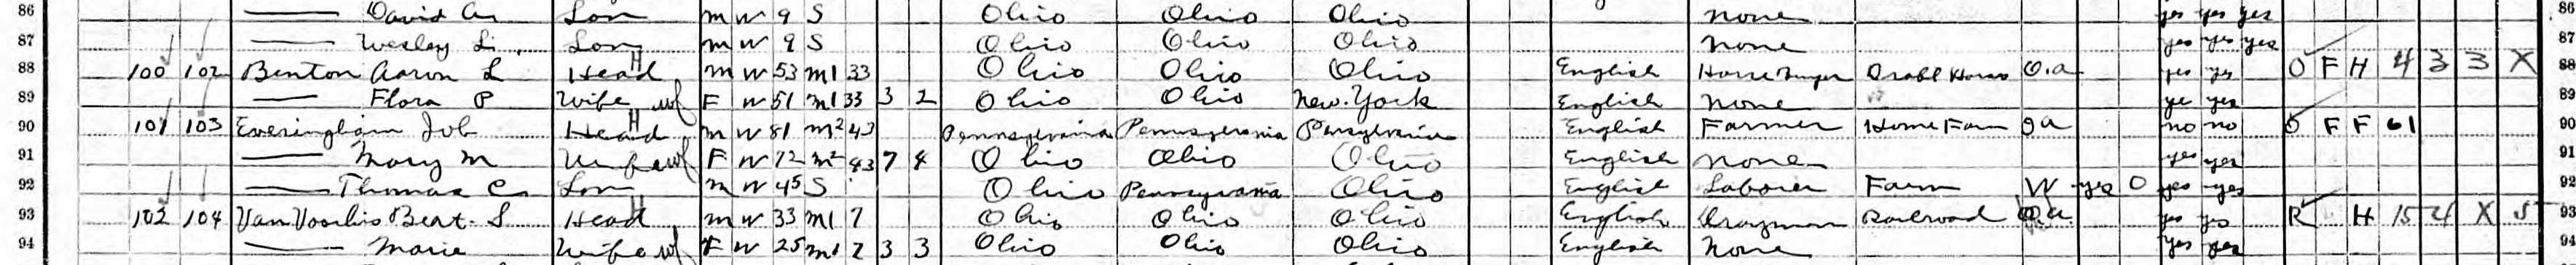 86 —— David A. Son m W 9 S Ohio Ohio Ohio none yes yes yes 86
87 —— Wesley L. Son m W 9 S Ohio Ohio Ohio none yes yes yes 87
88 100 102 Benton Aaron L Head H m W 53 m1 33 Ohio Ohio Ohio English Horse Buyer Draft Horses O.a yes yes O F H 4 3 3 X 88
89 —— Flora P Wife F W 51 m1 33 3 2 Ohio Ohio New York English none ye yes 89
90 101 103 Everingham Job Head H m W 81 m2 43 Pennsylvania Pennsylvania Pensylvania English Farmer Home Farm Oa no no O F F 61 90
91 —— Mary M Wife F W 72 m2 43 7 4 Ohio Ohio Ohio English none yes yes 91
92 —— Thomas C Son m W 45 S Ohio Pennsyvania Ohio English Laborer Farm W yes 0 yes yes 92
93 102 104 Van Voorhis Bert. S Head H m W 33 m1 7 Ohio Ohio Ohio English Drayman Railroad yes yes R H 15 4 X 5 93
94 —— Marie Wife F W 25 m1 7 3 3 Ohio Ohio Ohio English None yes yes 94